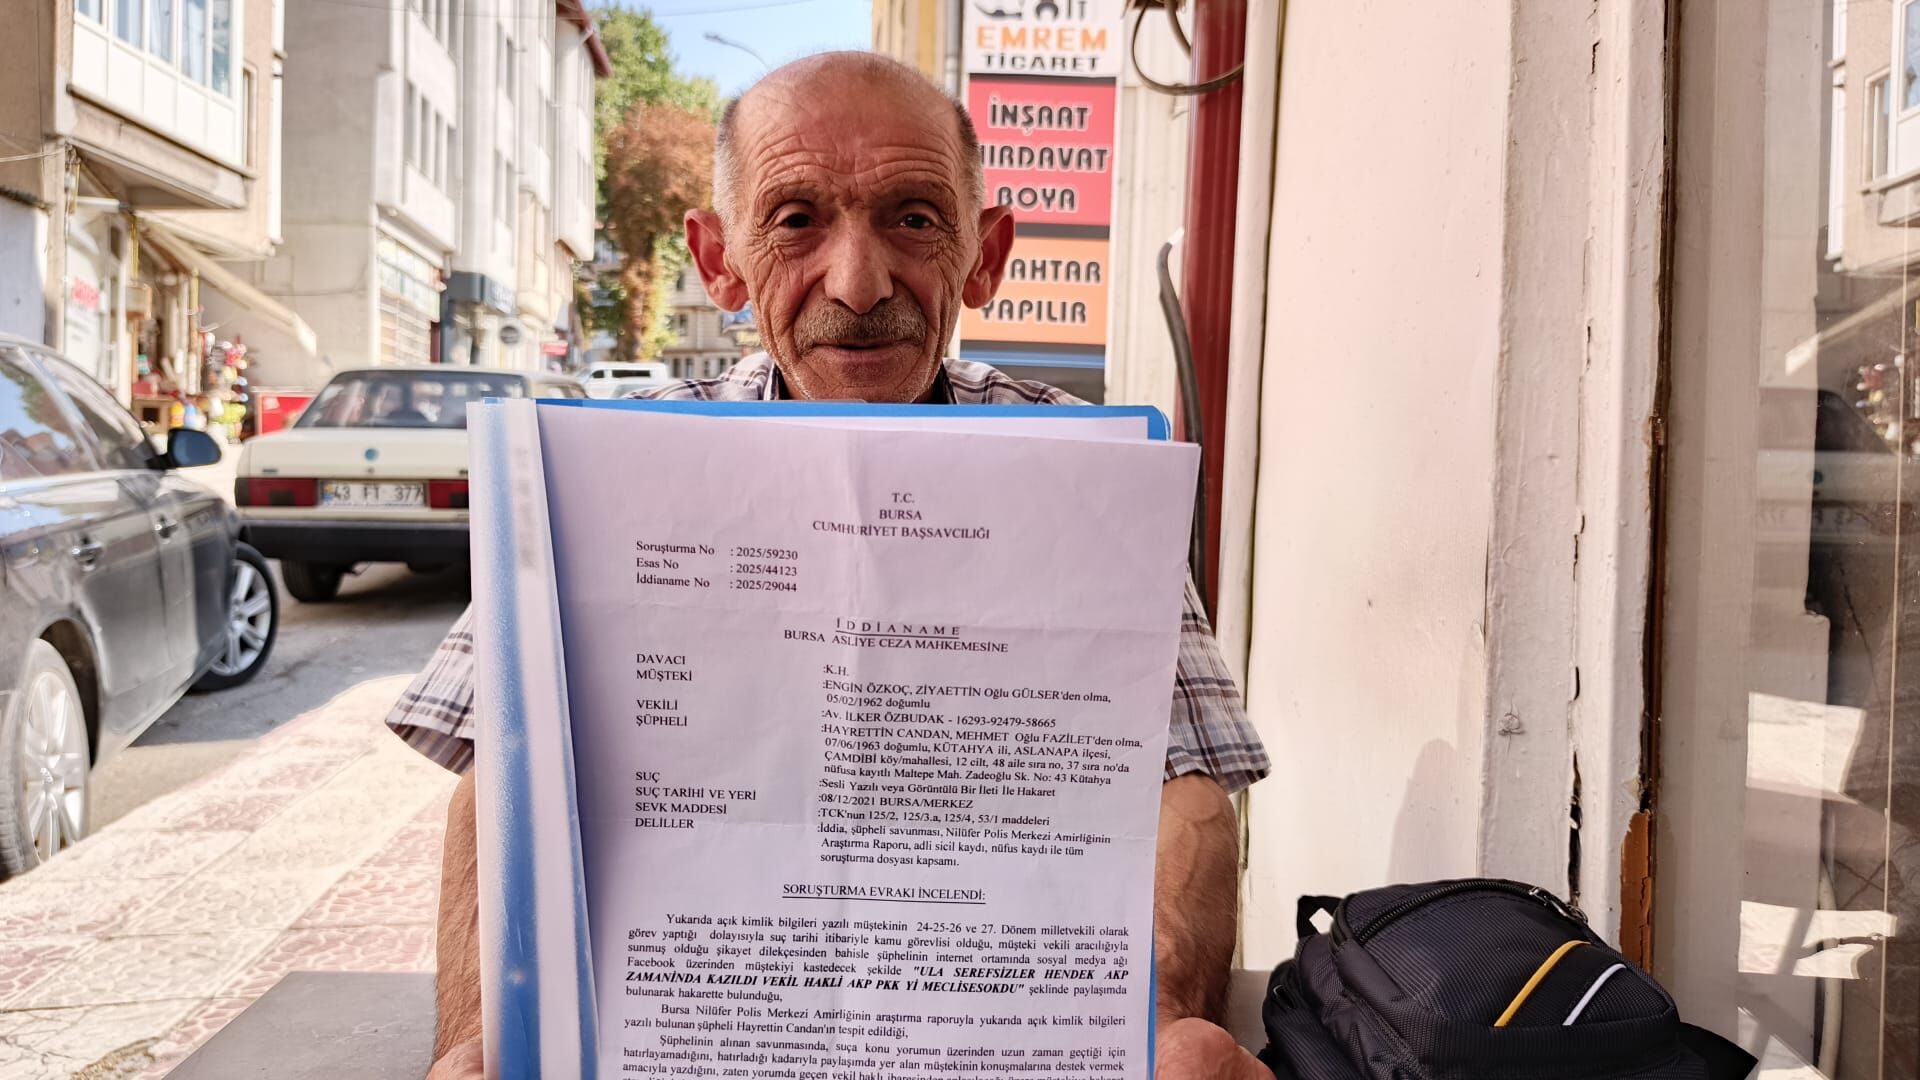 EMREM
TİCARET
İNŞAAT
HIRDAVAT
BOYA
YAPILIR
43 FT 377
T.C.
BURSA
CUMHURİYET BAŞSAVCILIĞI
Soruşturma No : 2025/59230
Esas No : 2025/44123
İddianame No : 2025/29044
İDDİANAME
BURSA ASLİYE CEZA MAHKEMESİNE
DAVACI :K.H.
MÜŞTEKİ :ENGİN ÖZKOÇ, ZİYAETTİN Oğlu GÜLSER'den olma,
05/02/1962 doğumlu
VEKİLİ :Av. İLKER ÖZBUDAK - 16293-92479-58665
ŞÜPHELİ :HAYRETTİN CANDAN, MEHMET Oğlu FAZİLET'den olma,
07/06/1963 doğumlu, KÜTAHYA ili, ASLANAPA ilçesi,
ÇAMDİBİ köy/mahallesi, 12 cilt, 48 aile sıra no, 37 sıra no'da
nüfusa kayıtlı Maltepe Mah. Zadeoğlu Sk. No: 43 Kütahya
SUÇ :Sesli Yazılı veya Görüntülü Bir İleti İle Hakaret
SUÇ TARİHİ VE YERİ :08/12/2021 BURSA/MERKEZ
SEVK MADDESİ :TCK'nun 125/2, 125/3.a, 125/4, 53/1 maddeleri
DELİLLER :İddia, şüpheli savunması, Nilüfer Polis Merkezi Amirliğinin
Araştırma Raporu, adli sicil kaydı, nüfus kaydı ile tüm
soruşturma dosyası kapsamı.
SORUŞTURMA EVRAKI İNCELENDİ:
Yukarıda açık kimlik bilgileri yazılı müştekinin 24-25-26 ve 27. Dönem milletvekili olarak
görev yaptığı dolayısıyla suç tarihi itibariyle kamu görevlisi olduğu, müşteki vekili aracılığıyla
sunmuş olduğu şikayet dilekçesinden bahisle şüphelinin internet ortamında sosyal medya ağı
Facebook üzerinden müştekiyi kastedecek şekilde "ULA SEREFSİZLER HENDEK AKP
ZAMANİNDA KAZILDI VEKİL HAKLİ AKP PKK Yİ MECLİSESOKDU" şeklinde paylaşımda
bulunarak hakarette bulunduğu,
Bursa Nilüfer Polis Merkezi Amirliğinin araştırma raporuyla yukarıda açık kimlik bilgileri
yazılı bulunan şüpheli Hayrettin Candan'ın tespit edildiği,
Şüphelinin alınan savunmasında, suça konu yorumun üzerinden uzun zaman geçtiği için
hatırlayamadığını, hatırladığı kadarıyla paylaşımda yer alan müştekinin konuşmalarına destek vermek
amacıyla yazdığını, zaten yorumda geçen vekil haklı ibaresinden